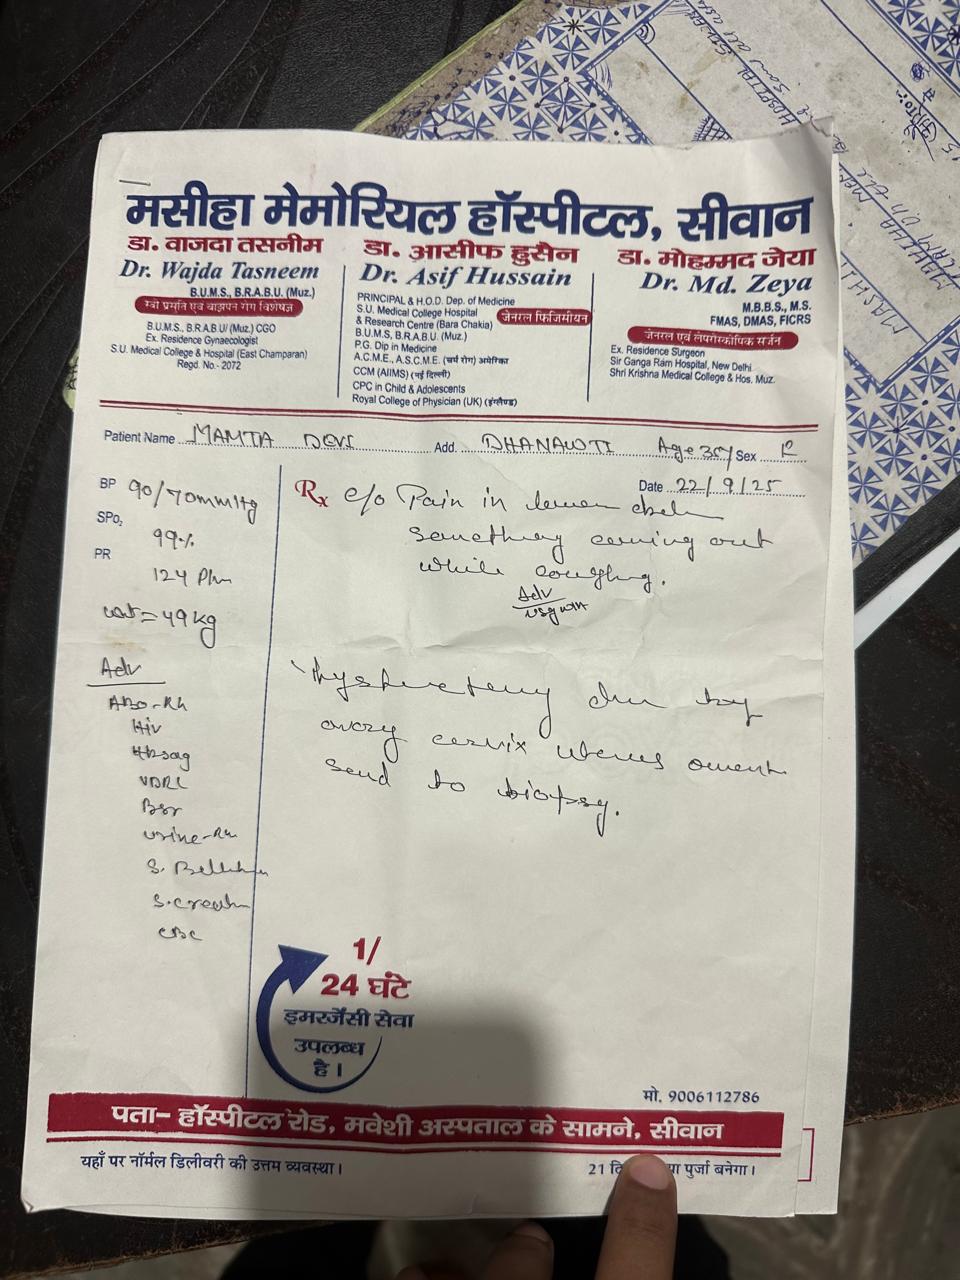 मसीहा मेमोरियल हॉस्पीटल, सीवान
डा. वाजदा तसनीम
Dr. Wajda Tasneem
B.U.M.S., B.R.A.B.U. (Muz.)
स्त्री प्रसूति एवं बाझपन रोग विशेषज्ञ
B.U.M.S., B.R.A.B.U/ (Muz.) CGO
Ex. Residence Gynaecologist
S.U. Medical College & Hospital (East Champaran)
Regd. No.- 2072
डा. आसीफ हुसैन
Dr. Asif Hussain
PRINCIPAL & H.O.D. Dep. of Medicine
S.U. Medical College Hospital
& Research Centre (Bara Chakia)
जेनरल फिजिसीयन
B.U.M.S, B.R.A.B.U. (Muz.)
P.G. Dip in Medicine
A.C.M.E., A.S.C.M.E. (चर्म रोग) अमेरिका
CCM (AIIMS) (नई दिल्ली)
CPC in Child & Adolescents
Royal College of Physician (UK) (इंग्लैण्ड)
डा. मोहम्मद जेया
Dr. Md. Zeya
M.B.B.S., M.S.
FMAS, DMAS, FICRS
जेनरल एवं लेपरोस्कोपिक सर्जन
Ex. Residence Surgeon
Sir Ganga Ram Hospital, New Delhi
Shri Krishna Medical College & Hos. Muz.
Patient Name MAMTA DEVI Add. DHANAWTI Age 35y Sex
Date 22/9/25
BP 90/70mmHg
SPO₂ 99%
PR 124 P/m
wt = 49kg
Rx c/o Pain in lower
something coming out
while coughing.
Adv
usg
Adv
ABO-Rh
HIV
Hbsag
VDRL
Bsr
Urine-Rm
S.
S.creatin
CBC
Hysterectomy
ovary cervix uterus
send to biopsy.
1/
24 घंटे
इमरजेंसी सेवा
उपलब्ध
है।
मो. 9006112786
पता- हॉस्पीटल रोड, मवेशी अस्पताल के सामने, सीवान
यहाँ पर नॉर्मल डिलीवरी की उत्तम व्यवस्था।
21 पुर्जा बनेगा।